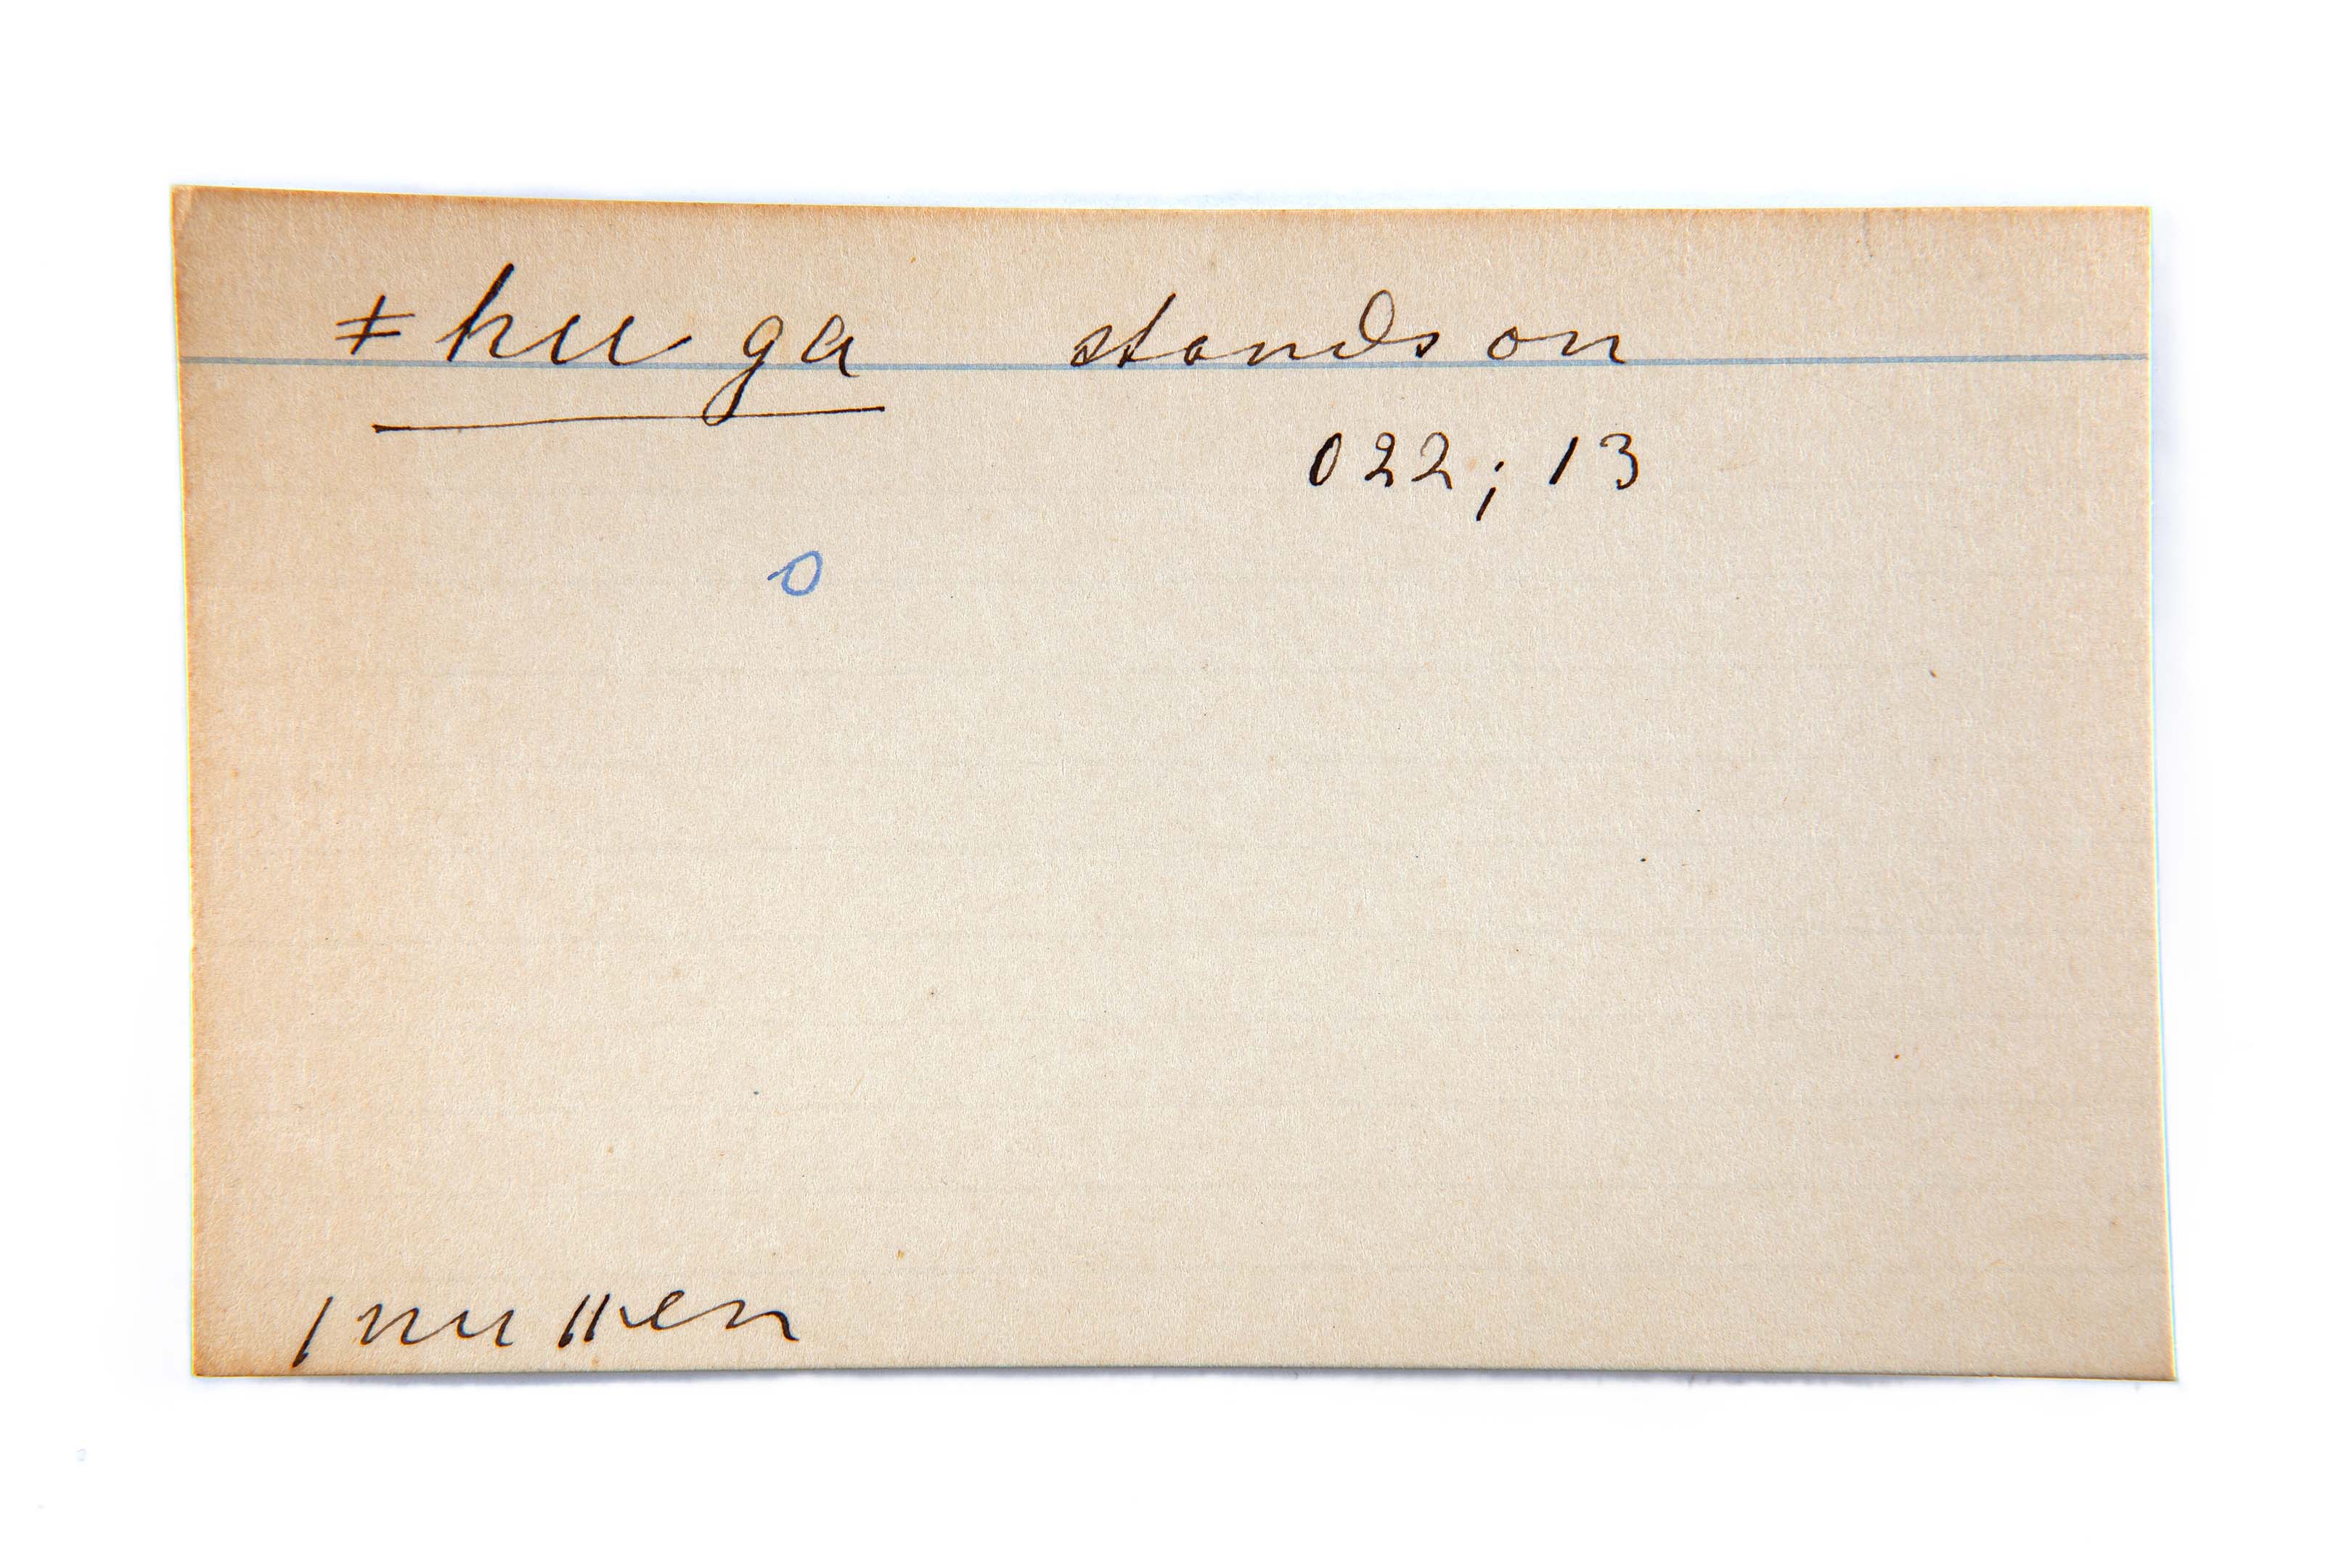 ǂhu ga stands on
022; 13
o
|nu ||en